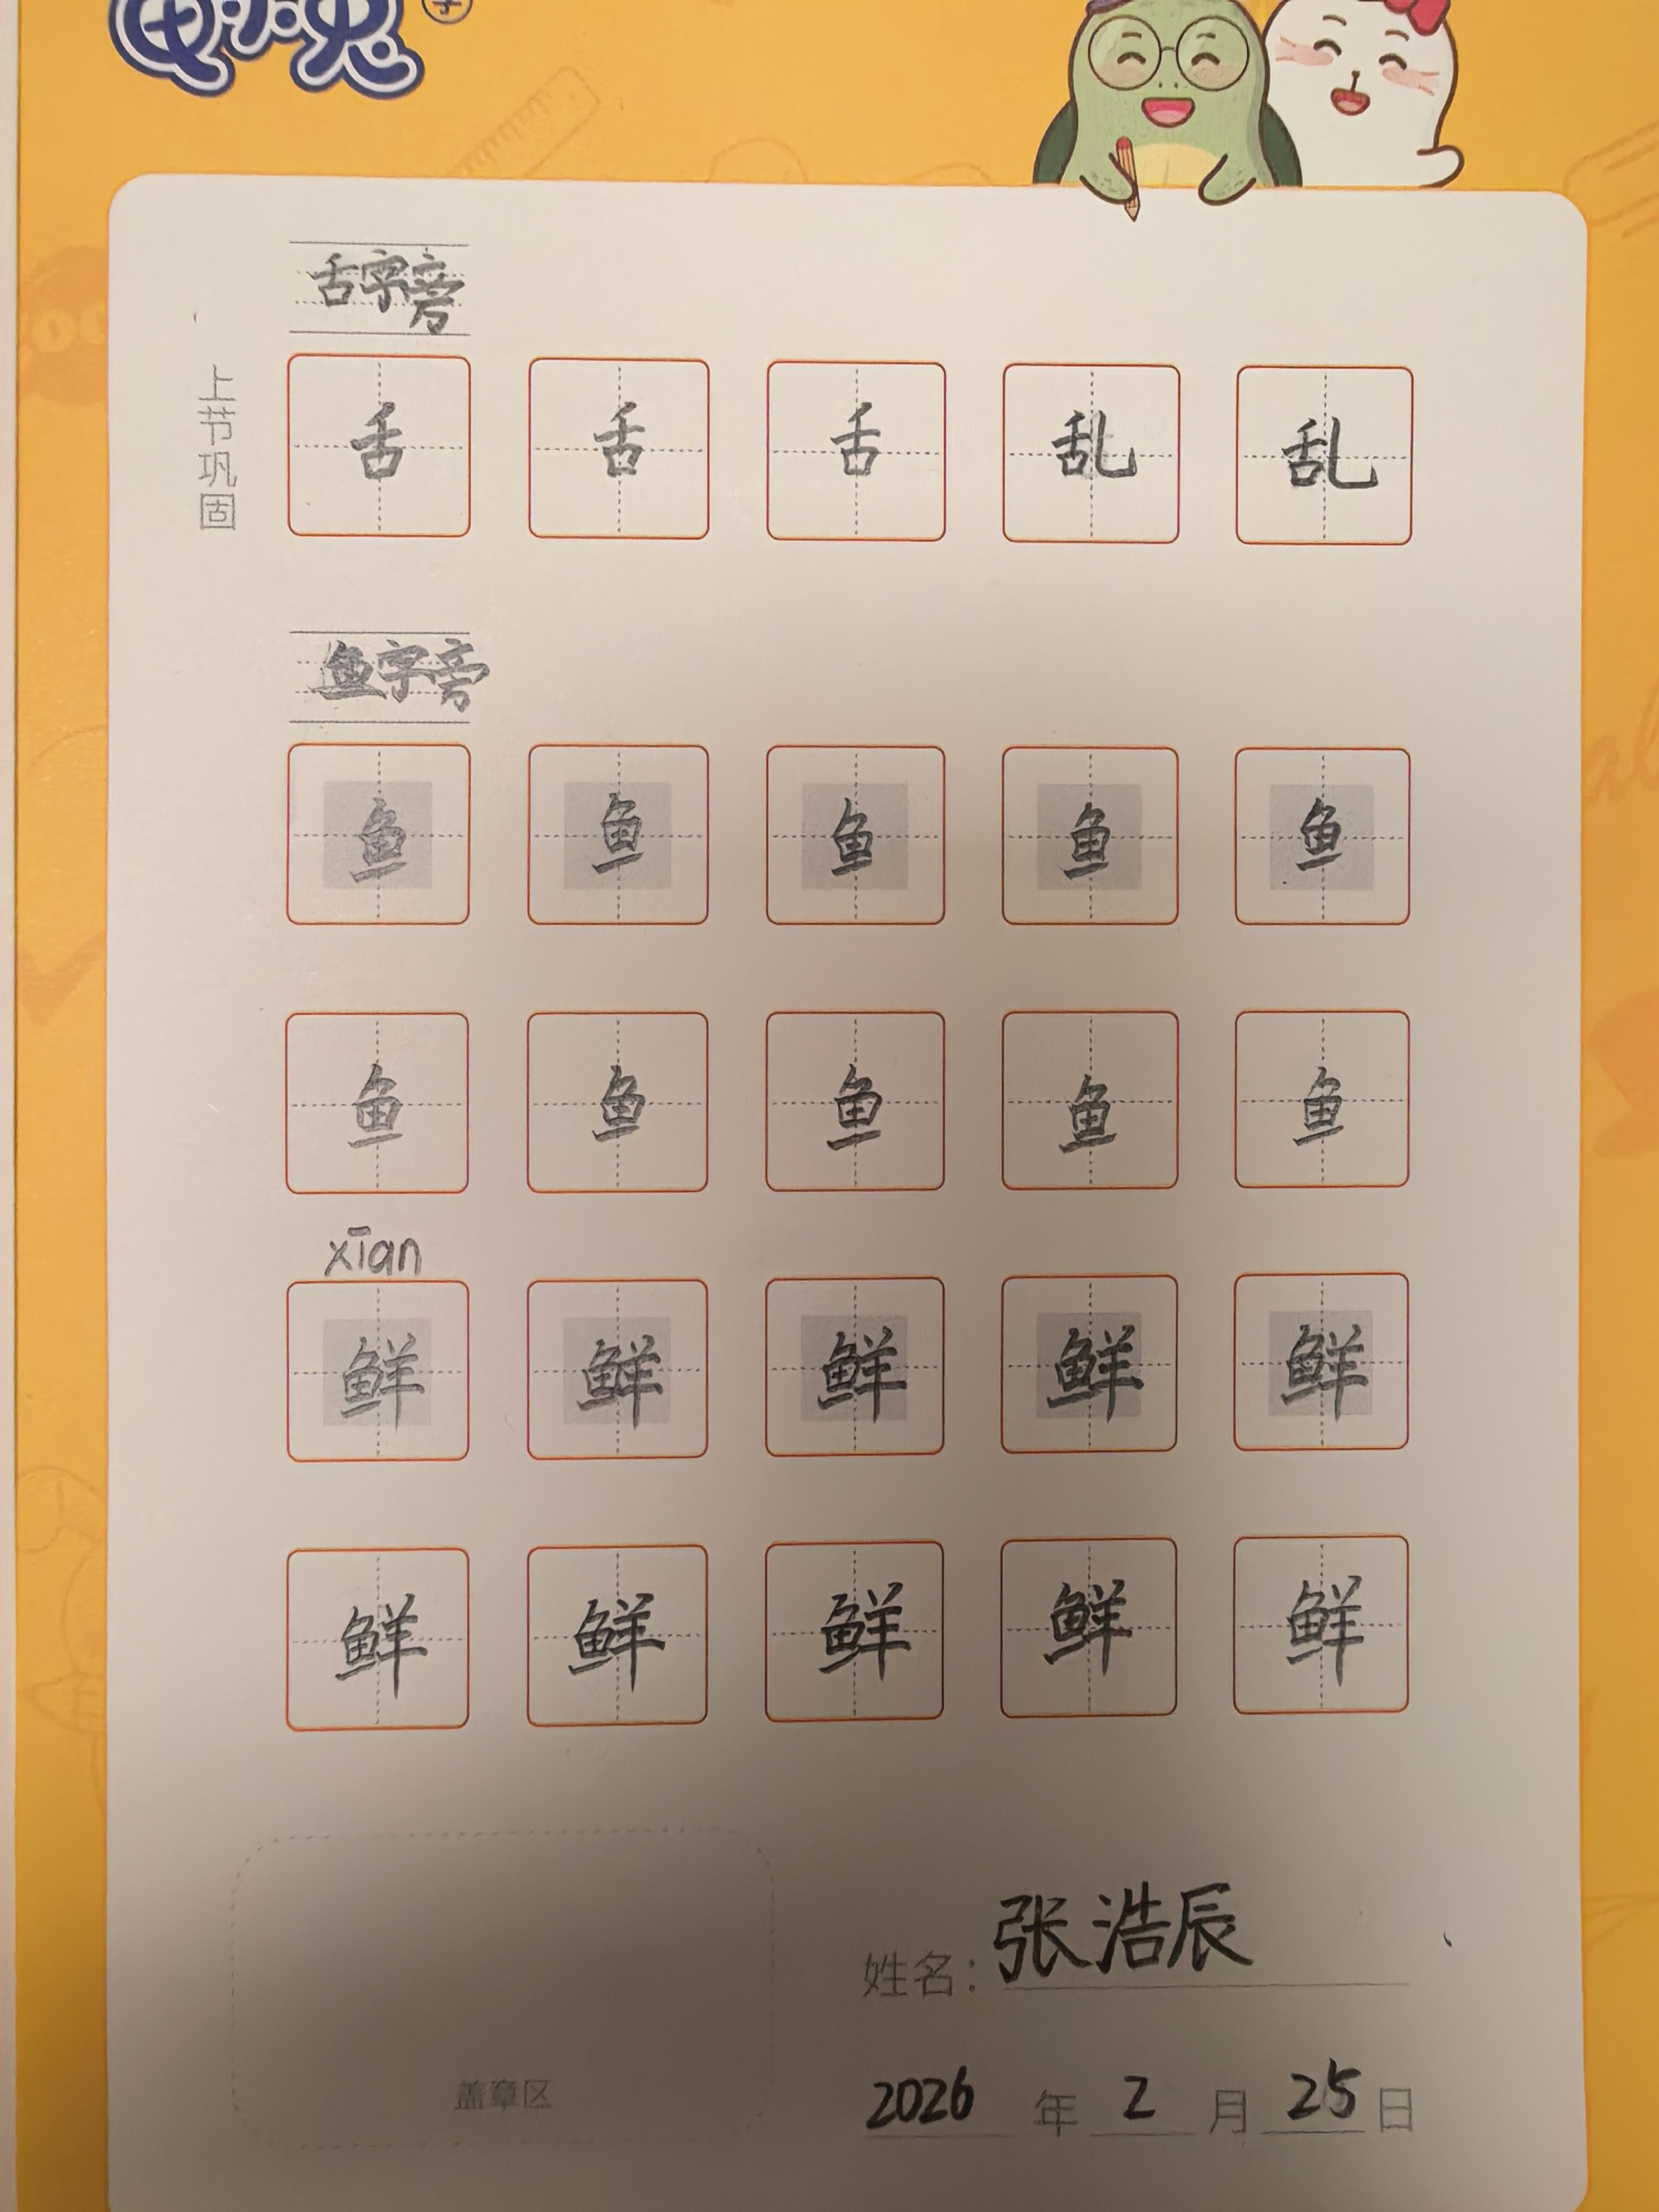 舌字旁
上节巩固
舌 舌 舌 乱 乱
鱼字旁
鱼 鱼 鱼 鱼 鱼
鱼 鱼 鱼 鱼 鱼
xiān
鲜 鲜 鲜 鲜 鲜
鲜 鲜 鲜 鲜 鲜
姓名：张浩辰
盖章区
2026 年 2 月 25 日